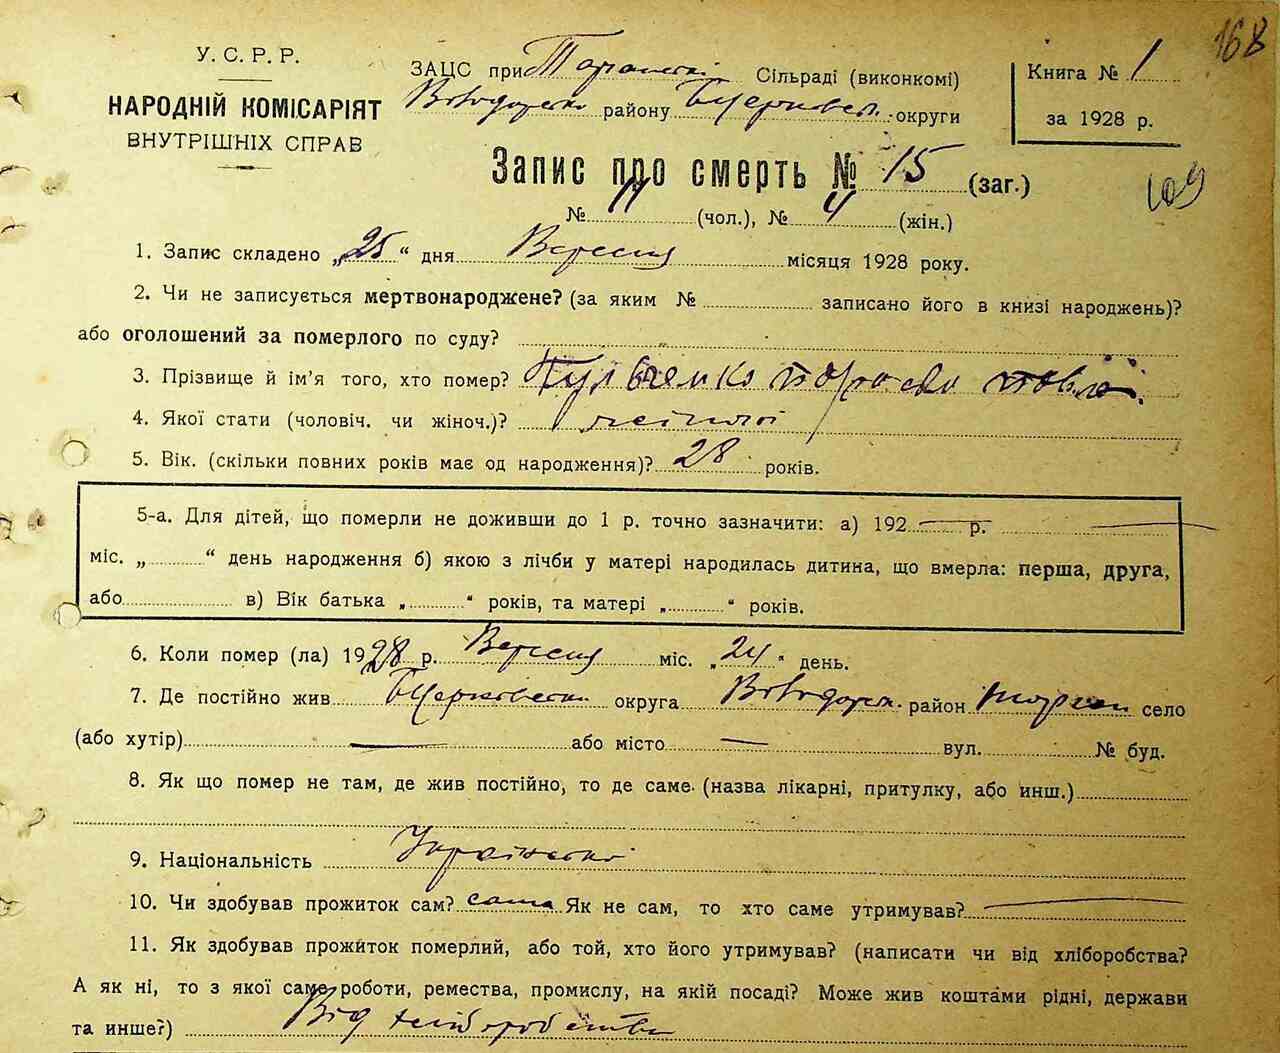 168
У. С. Р. Р.
НАРОДНІЙ КОМІСАРІЯТ
ВНУТРІШНІХ СПРАВ
ЗАЦС при Сільраді (виконкомі)
району округи
Книга № 1
за 1928 р.
Запис про смерть № 15 (заг.)
109
№ 11 (чол.), № 4 (жін.)
1. Запис складено „25“ дня Вересня місяця 1928 року.
2. Чи не записується мертвонароджене? (за яким № записано його в книзі народжень)?
або оголошений за померлого по суду?
3. Прізвище й ім'я того, хто помер?
4. Якої стати (чоловіч. чи жіноч.)?
5. Вік. (скільки повних років має од народження)? 28 років.
5-а. Для дітей, що померли не доживши до 1 р. точно зазначити: а) 192 р.
міс. „ “ день народження б) якою з лічби у матері народилась дитина, що вмерла: перша, друга,
або в) Вік батька „ “ років, та матері „ “ років.
6. Коли помер (ла) 1928 р. Вересня міс. „24“ день.
7. Де постійно жив округа район село
(або хутір) або місто вул. № буд.
8. Як що помер не там, де жив постійно, то де саме (назва лікарні, притулку, або инш.)
9. Національність
10. Чи здобував прожиток сам? сама Як не сам, то хто саме утримував?
11. Як здобував прожиток померлий, або той, хто його утримував? (написати чи від хліборобства?
А як ні, то з якої саме роботи, ремества, промислу, на якій посаді? Може жив коштами рідні, держави
та инше?) Від хліборобства